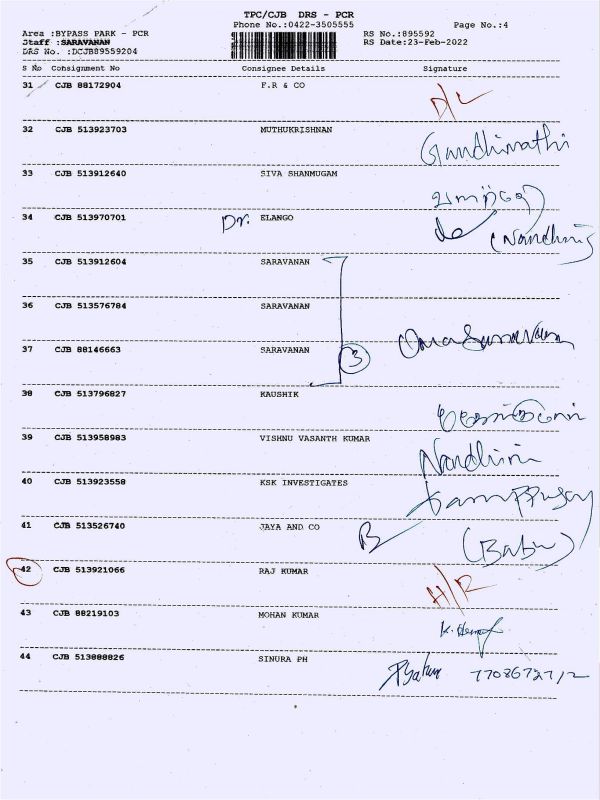 TPC/CJB DRS - PCR
Phone No.:0422-3505555 Page No.:4
Area :BYPASS PARK - PCR RS No.:895592
Staff :SARAVANAN RS Date:23-Feb-2022
DRS No. :DCJB89559204
S No Consignment No Consignee Details Signature
31 CJB 88172904 F.R & CO D/L
32 CJB 513923703 MUTHUKRISHNAN Gandhimathi
33 CJB 513912640 SIVA SHANMUGAM
34 CJB 513970701 Dr. ELANGO (Nandhini)
35 CJB 513912604 SARAVANAN
36 CJB 513576784 SARAVANAN
37 CJB 88146663 SARAVANAN 3
38 CJB 513796827 KAUSHIK
39 CJB 513958983 VISHNU VASANTH KUMAR Nandhini
40 CJB 513923558 KSK INVESTIGATES
41 CJB 513526740 JAYA AND CO B (Babu)
42 CJB 513921066 RAJ KUMAR H/R
43 CJB 88219103 MOHAN KUMAR
44 CJB 513888826 SINURA PH